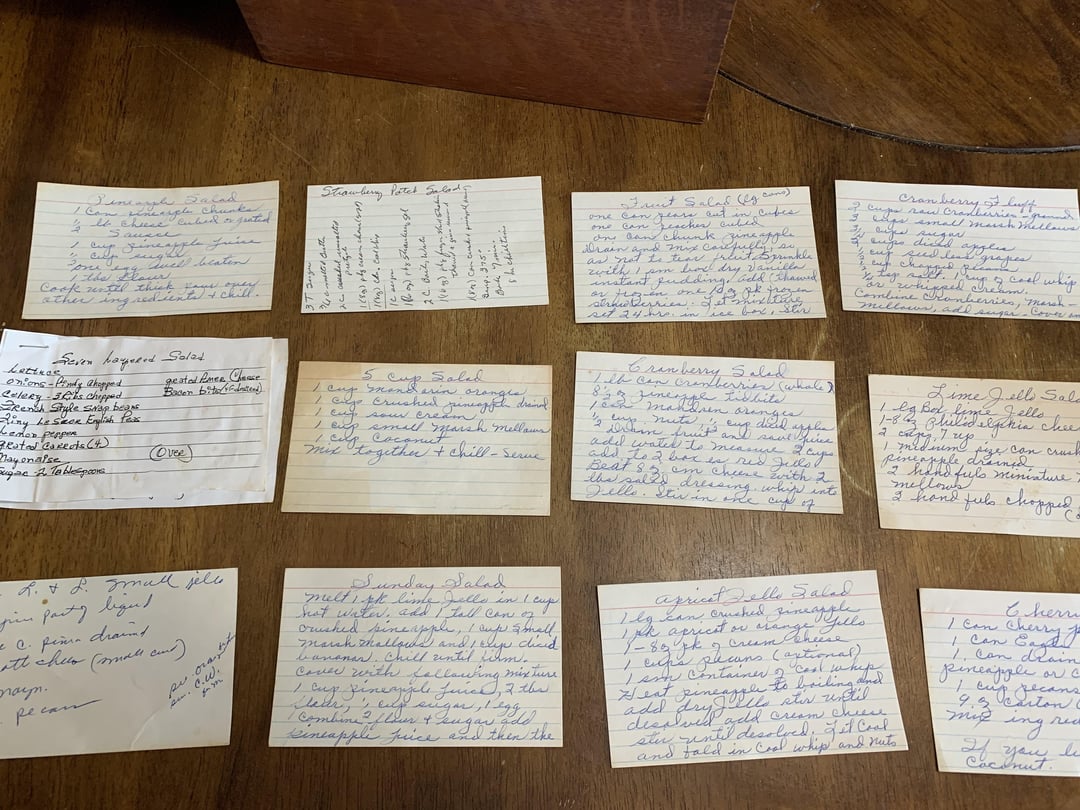 Pineapple Salad
1 Can pineapple chunks
½ lb cheese cubed or grated
Sauce
1 cup pineapple juice
½ cup sugar
one egg well beaten
Cook until thick pour over
other ingredients & chill.
Strawberry Patch Salad
3 T. Sugar
1 C sugar
2 C. Boiling Water
Bake 7 min.
Fruit Salad (lg cans)
one can pears cut in cubes
one can peaches cubed
one can chunk pineapple
Drain and mix carefully so
as not to tear fruit. Sprinkle
with 1 sm box dry Vanilla
instant pudding. add thawed
or frozen one 10 oz pk frozen
strawberries. Let mixture
set 24 hrs. in ice box, stir
Cranberry Fluff
2 cups raw Cranberries - ground
3 cups small marsh mellows
cups sugar
2 cups diced apples
cup seedless grapes
cup chopped pecans
tsp salt, 1 cup of Cool whip
or whipped cream.
Combine cranberries, marsh-
mellows, add sugar. Cover an
Seven Layered Salad
Lettuce
onions - Finely chopped
Celery - 3 Ribs chopped
French Style Snap beans
Tiny LeSeur English Peas
Lemon pepper
grated carrots (4)
Mayonaise
Sugar - 2 Tablespoons
grated Amer. Cheese
Bacon bits
Over
5 Cup Salad
1 cup mandarin oranges
1 cup crushed pineapple drained
1 cup sour cream
1 cup small marsh mellows
1 cup Coconut
Mix together & chill - serve
Cranberry Salad
1 lb can Cranberries (whole)
8½ oz pineapple tidbits
1 can mandren oranges
½ c nuts, ½ cup diced apple
Drain fruit and save juice
add water to measure 2 cups
add to 2 boxes red Jello
Beat 8 oz cm cheese with 2
tbs salad dressing whip into
Jello. Stir in one cup of
Lime Jello Sala
1 lg box lime Jello
1 - 8 oz Philadelphia chee
2 cups 7 up
1 midium size can crush
pineapple drained
2 handfuls miniature m
mellows
2 hand fuls chopped
L. & L. Small jello
c. pina drained
(small curd)
mayn.
pecan
Sunday Salad
Melt 1 pk lime Jello in 1 cup
hot water. add 1 tall can of
crushed pineapple, 1 cup small
marsh mallows and 1 cup diced
bananas. Chill until firm.
Cover with following mixture
1 cup pineapple juice, 2 tbs
flour, ½ cup sugar, 1 egg
Combine flour & sugar add
pineapple juice and then the
apricot Jello Salad
1 lg can crushed pineapple
1 pk apricot or orange Jello
1 - 8 oz pk of cream cheese
1 cups pecans (optional)
1 sm container of Cool whip
Heat pineapple to boiling and
add dry Jello stir until
desolved add cream cheese
stir until desolved. Let Cool
and fold in Cool whip and nuts
Cherry
1 can Cherry p
1 can Eagle
1 can drain
pineapple or c
1 cup pecans
9 oz Carton C
Mix ing red
If you li
Coconut.